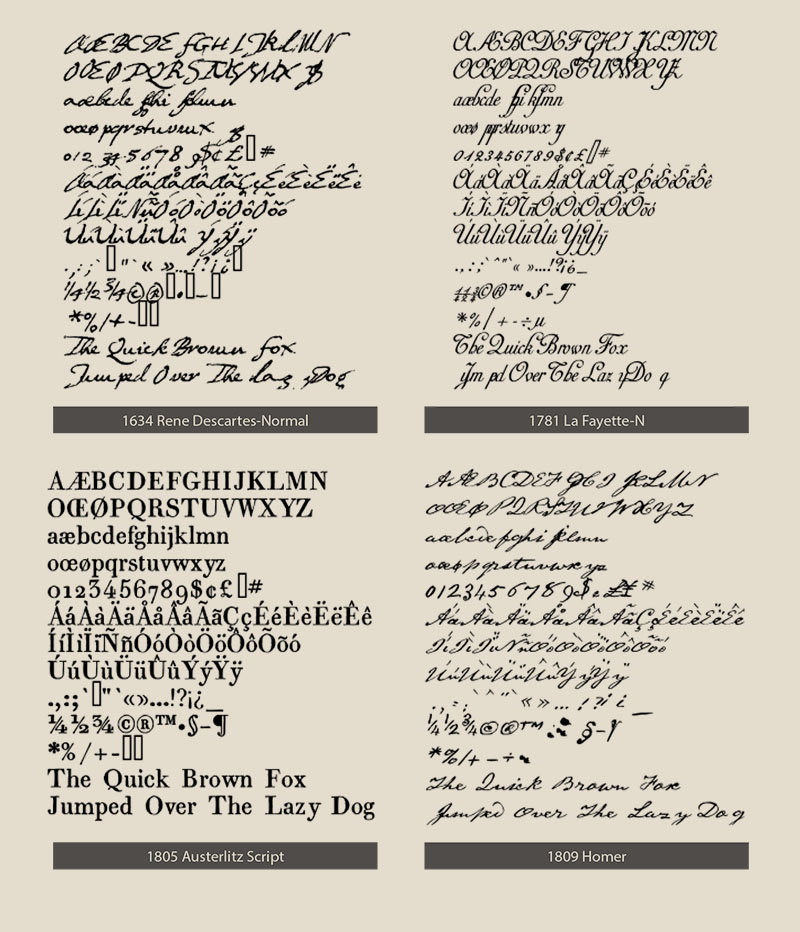 AÆBCDE FGHIJKLMN
OŒØPQRSTUVWX YZ
aæbcde fghi jklmn
oœøpqrstuvwx yz
012 345678 9$¢£▯#
ÁáÀàÄäÅåÂâÃãÇçÉéÈèËëÊê
ÍíÌìÏïÑñÓóÒòÖöÔôÕõó
ÚúÙùÜüÛû ÝýŸÿ
.,:;`▯"¨`«»...!?¡¿▯
¼½¾©®▯•▯_▯
*%/+-▯▯
The Quick Brown Fox
Jumped Over The Lazy Dog
1634 Rene Descartes-Normal
AÆBCDEFGHIJKLMN
OŒØPQRSTUVWX YZ
aæbcde fghi jklmn
oœø pqrstuvwx y
0123456789$¢£▯#
ÁáÀàÄäÅåÂâÃãÇçÉéÈèËëÊê
ÍíÌìÏïÑñÓóÒòÖöÔôÕõó
ÚúÙùÜüÛûÝýŸÿ
.,:;`^"¨`«»...!?¡¿_
¼½¾©®™•§–¶
*%/+-÷µ
The Quick Brown Fox
Jum pd Over The Laz yDo g
1781 La Fayette-N
AÆBCDEFGHIJKLMN
OŒØPQRSTUVWXYZ
aæbcdefghijklmn
oœøpqrstuvwxyz
0123456789$¢£▯#
ÁáÀàÄäÅåÂâÃãÇçÉéÈèËëÊê
ÍíÌìÏïÑñÓóÒòÖöÔôÕõó
ÚúÙùÜüÛûÝýŸÿ
.,:;`▯"¨`«»...!?¡¿_
¼½¾©®™•§–¶
*%/+-▯▯
The Quick Brown Fox
Jumped Over The Lazy Dog
1805 Austerlitz Script
AÆBCDEFGHIJKLMN
OŒØPQRSTUVWXYZ
aæbcdefghijklmn
oœøpqrstuvwxyz
0123456789$¢£¥#
ÁáÀàÄäÅåÂâÃãÇçÉéÈèËëÊê
ÍíÌìÏïÑñÓóÒòÖöÔôÕõó
ÚúÙùÜüÛûÝýŸÿ
.,:;`^"¨`«»...!?¡¿_
¼½¾©®™•§–¶
*%/+-÷
The Quick Brown Fox
Jumped Over The Lazy Dog
1809 Homer